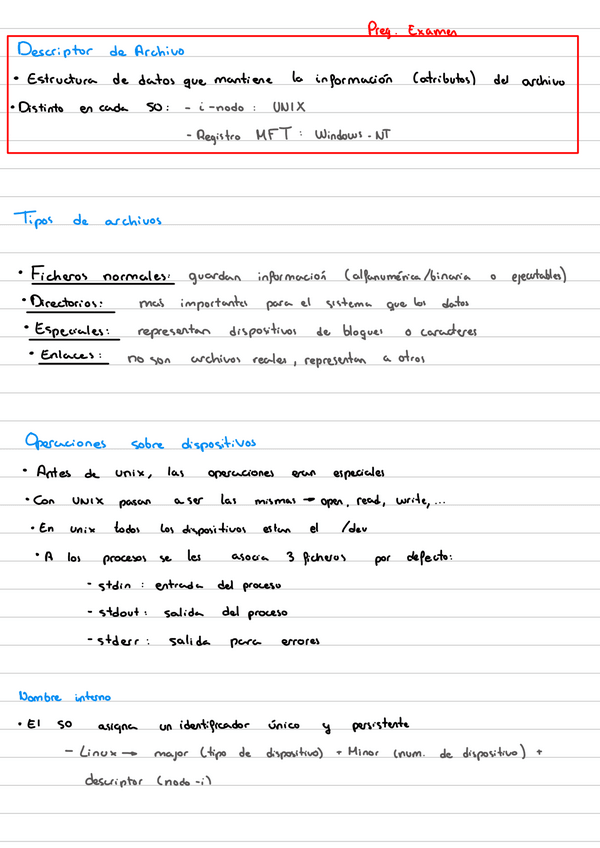 Preg. Examen
Descriptor de Archivo
• Estructura de datos que mantiene la información (atributos) del archivo
• Distinto en cada SO: - i-nodo : UNIX
- Registro MFT : Windows-NT
Tipos de archivos
• Ficheros normales: guardan información (alfanumérica/binaria o ejecutables)
• Directorios: mas importantes para el sistema que los datos
• Especiales: representan dispositivos de bloques o caracteres
• Enlaces: no son archivos reales, representan a otros
Operaciones sobre dispositivos
• Antes de unix, las operaciones eran especiales
• Con UNIX pasan a ser las mismas → open, read, write,...
• En unix todos los dispositivos estan el /dev
• A los procesos se les asocia 3 ficheros por defecto:
- stdin : entrada del proceso
- stdout : salida del proceso
- stderr : salida para errores
Nombre interno
• El SO asigna un identificador único y persistente
- Linux → major (tipo de dispositivo) + Minor (num. de dispositivo) +
descriptor (nodo-i)